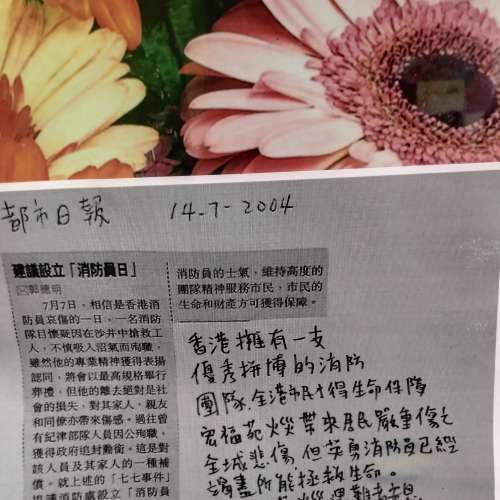 都市日報 14-7-2004
建議設立「消防員日」
郭德明
7月7日，相信是香港消
防員哀傷的一日，一名消防
隊目懷疑因在沙井中搶救工
人，不慎吸入沼氣而殉職，
雖然他的專業精神獲得表揚
認同，將會以最高規格舉行
葬禮，但他的離去絕對是社
會的損失，對其家人、親友
和同僚亦帶來傷感。過往曾
有紀律部隊人員因公殉職，
獲得政府追封勳銜，這是對
該人員及其家人的一種補
償。就上述的「七七事件」
提議消防處設立「消防員
消防員的士氣，維持高度的
團隊精神服務市民，市民的
生命和財產方可獲得保障。
香港擁有一支
優秀拼博的消防
團隊，全港市民才得生命保障
宏福苑火災帶來居民嚴重傷亡
全城悲傷，但英勇消防員已經
竭盡所能拯救生命。